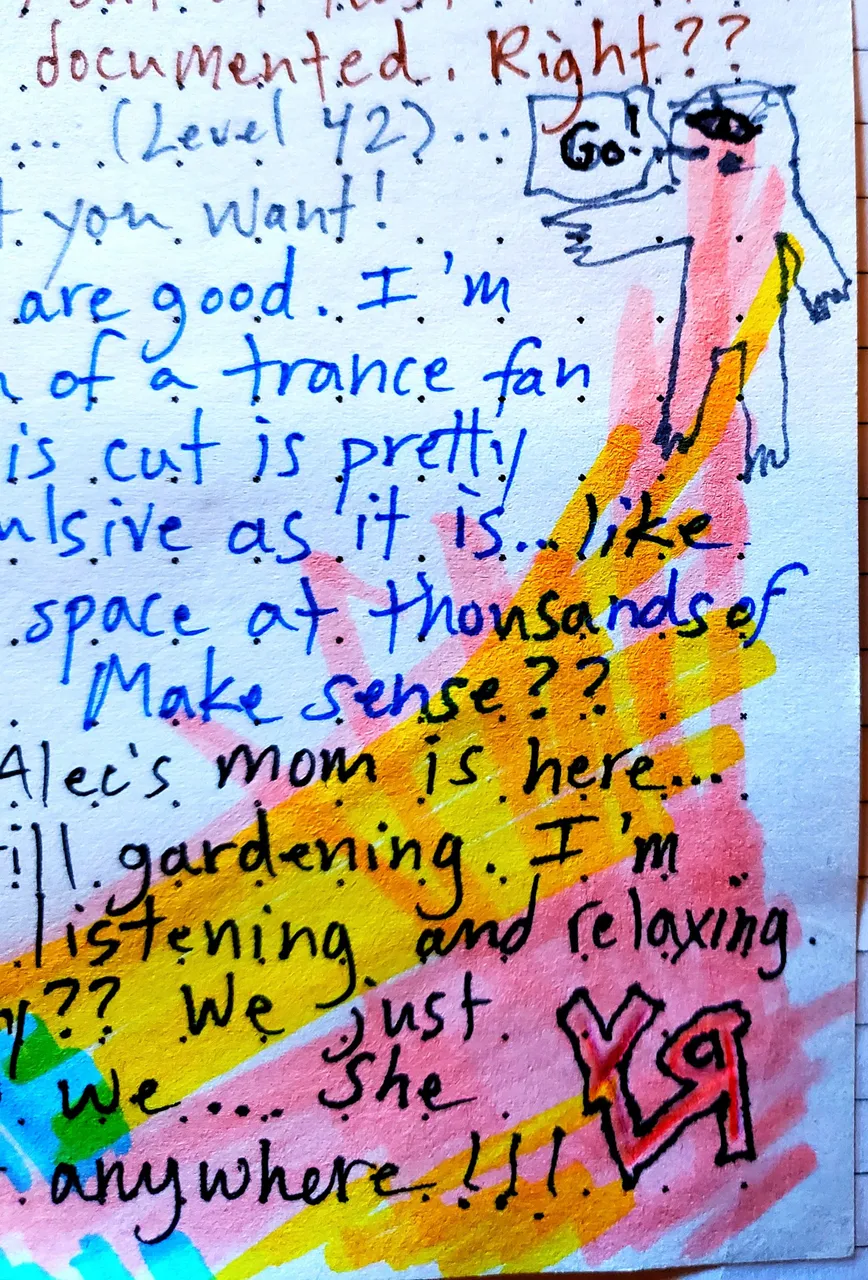 documented. Right??
... (Level 42)...
Go!
you want!
are good. I'm
of a trance fan
is cut is pretty
ulsive as it is...like
space at thousands of
Make sense??
Alec's mom is here...
ill gardening. I'm
listening and relaxing.
y?? We just
we.... She
anywhere!!!